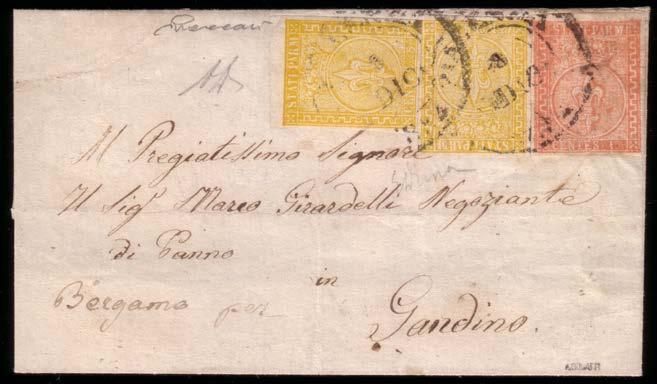 STATI PARM
STATI PARM
STATI PARM
DIC
DIC
CENTES
Al Pregiatissimo Signore
Il Sigr Marco Girardelli Negoziante
di Panno
in
Bergamo per
Gandino.